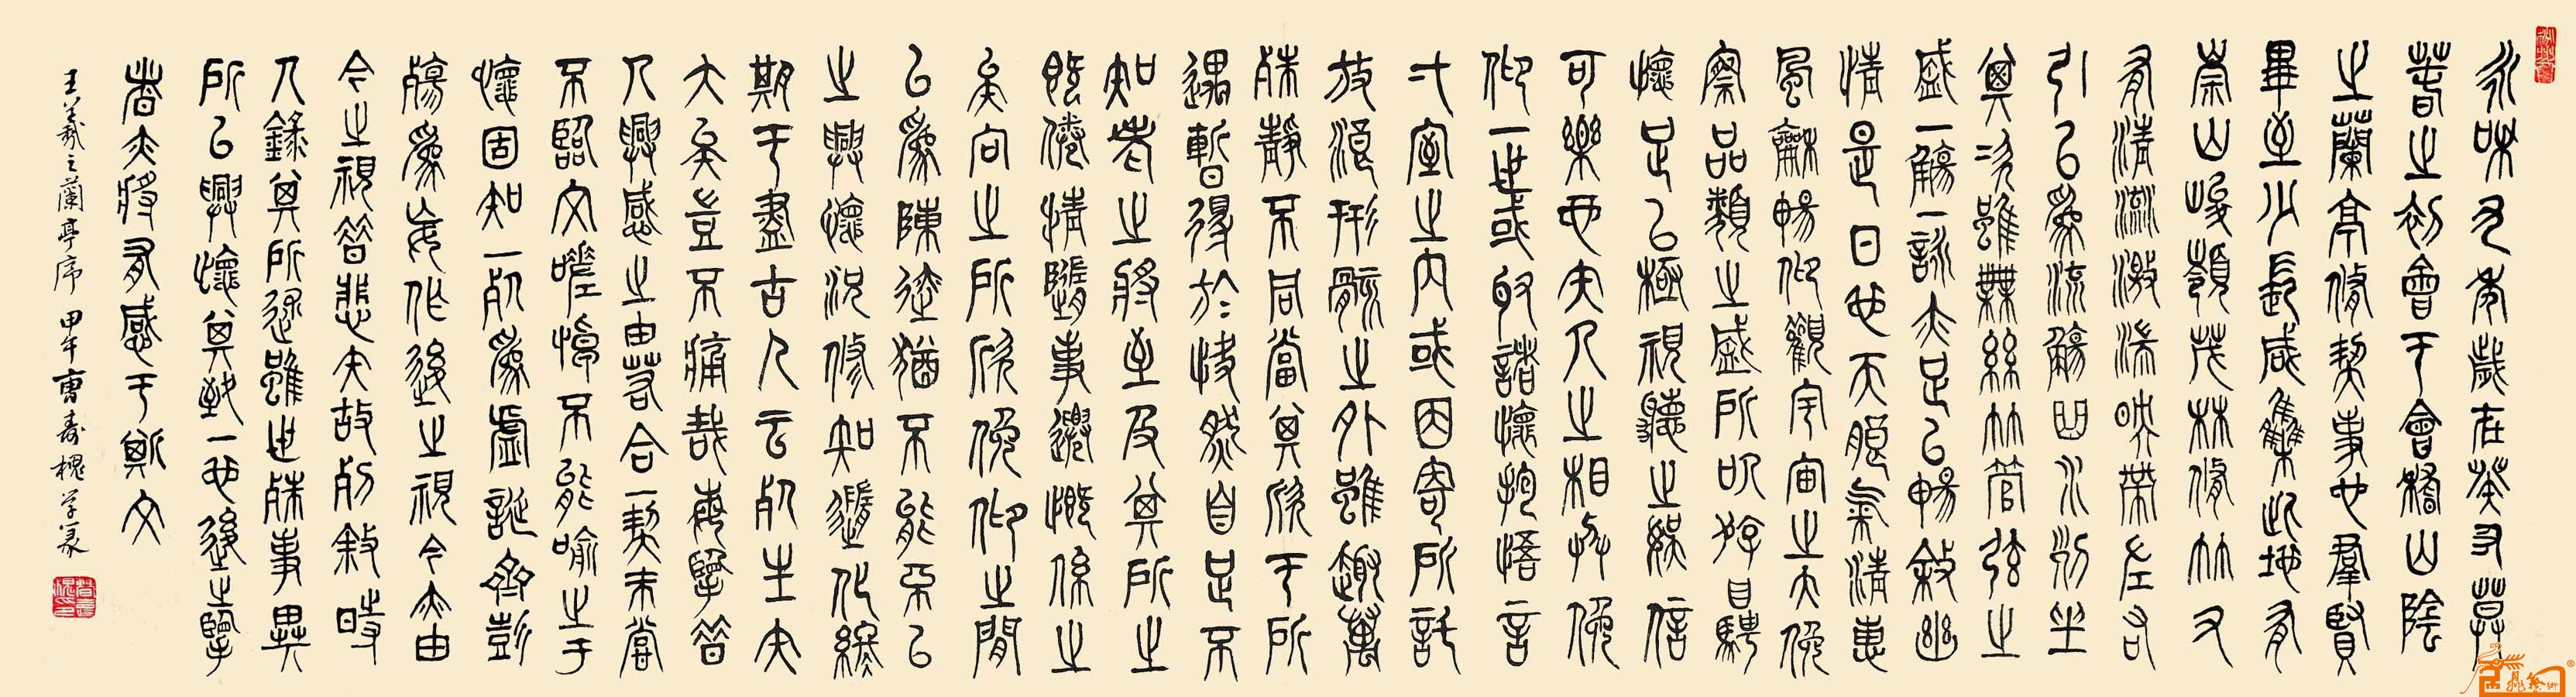 永和九年歲在癸丑暮
春之初會于會稽山陰
之蘭亭脩禊事也羣賢
畢至少長咸集此地有
崇山峻領茂林脩竹又
有清流激湍映帶左右
引以為流觴曲水列坐
其次雖無絲竹管弦之
盛一觴一詠亦足以暢敘幽
情是日也天朗氣清惠
風和暢仰觀宇宙之大俯
察品類之盛所以游目騁
懷足以極視聽之娛信
可樂也夫人之相與俯
仰一世或取諸懷抱悟言
一室之內或因寄所託
放浪形骸之外雖趣萬
殊靜不同當其欣于所
遇暫得於快然自足不
知老之將至及其所之
既倦情隨事遷慨係之
矣向之所欣俯仰之間
以為陳迹猶不能不以
之興懷況修短隨化終
期于盡古人云死生亦
大矣豈不痛哉每攬昔
人興感之由若合一契未嘗
不臨文嗟悼不能喻之于
懷固知一死為虛誕齊彭
殤為妄作後之視今亦由
今之視昔悲夫故列敘時
人錄其所述雖世殊事異
所以興懷其致一也後之攬
者亦將有感于斯文
王羲之蘭亭序 甲午 曹壽槐學篆